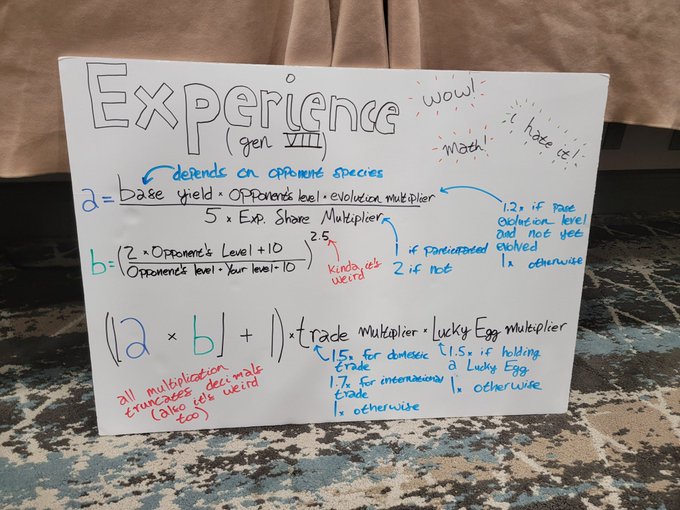 Experience
(gen VIII)
wow!
math!
i hate it!
depends on opponent species
a = base yield × opponent's level × evolution multiplier
5 × Exp. Share Multiplier
1.2× if past
evolution level
and not yet
evolved
1× otherwise
1 if participated
2 if not
b = (2 × Opponent's Level + 10
Opponent's level + Your level + 10) 2.5
kinda, it's
weird
(⌊a × b⌋ + 1) × trade multiplier × Lucky Egg multiplier
1.5× for domestic
trade
1.7× for international
trade
1× otherwise
1.5× if holding
a Lucky Egg
1× otherwise
all multiplication
truncates decimals
(also it's weird
too)